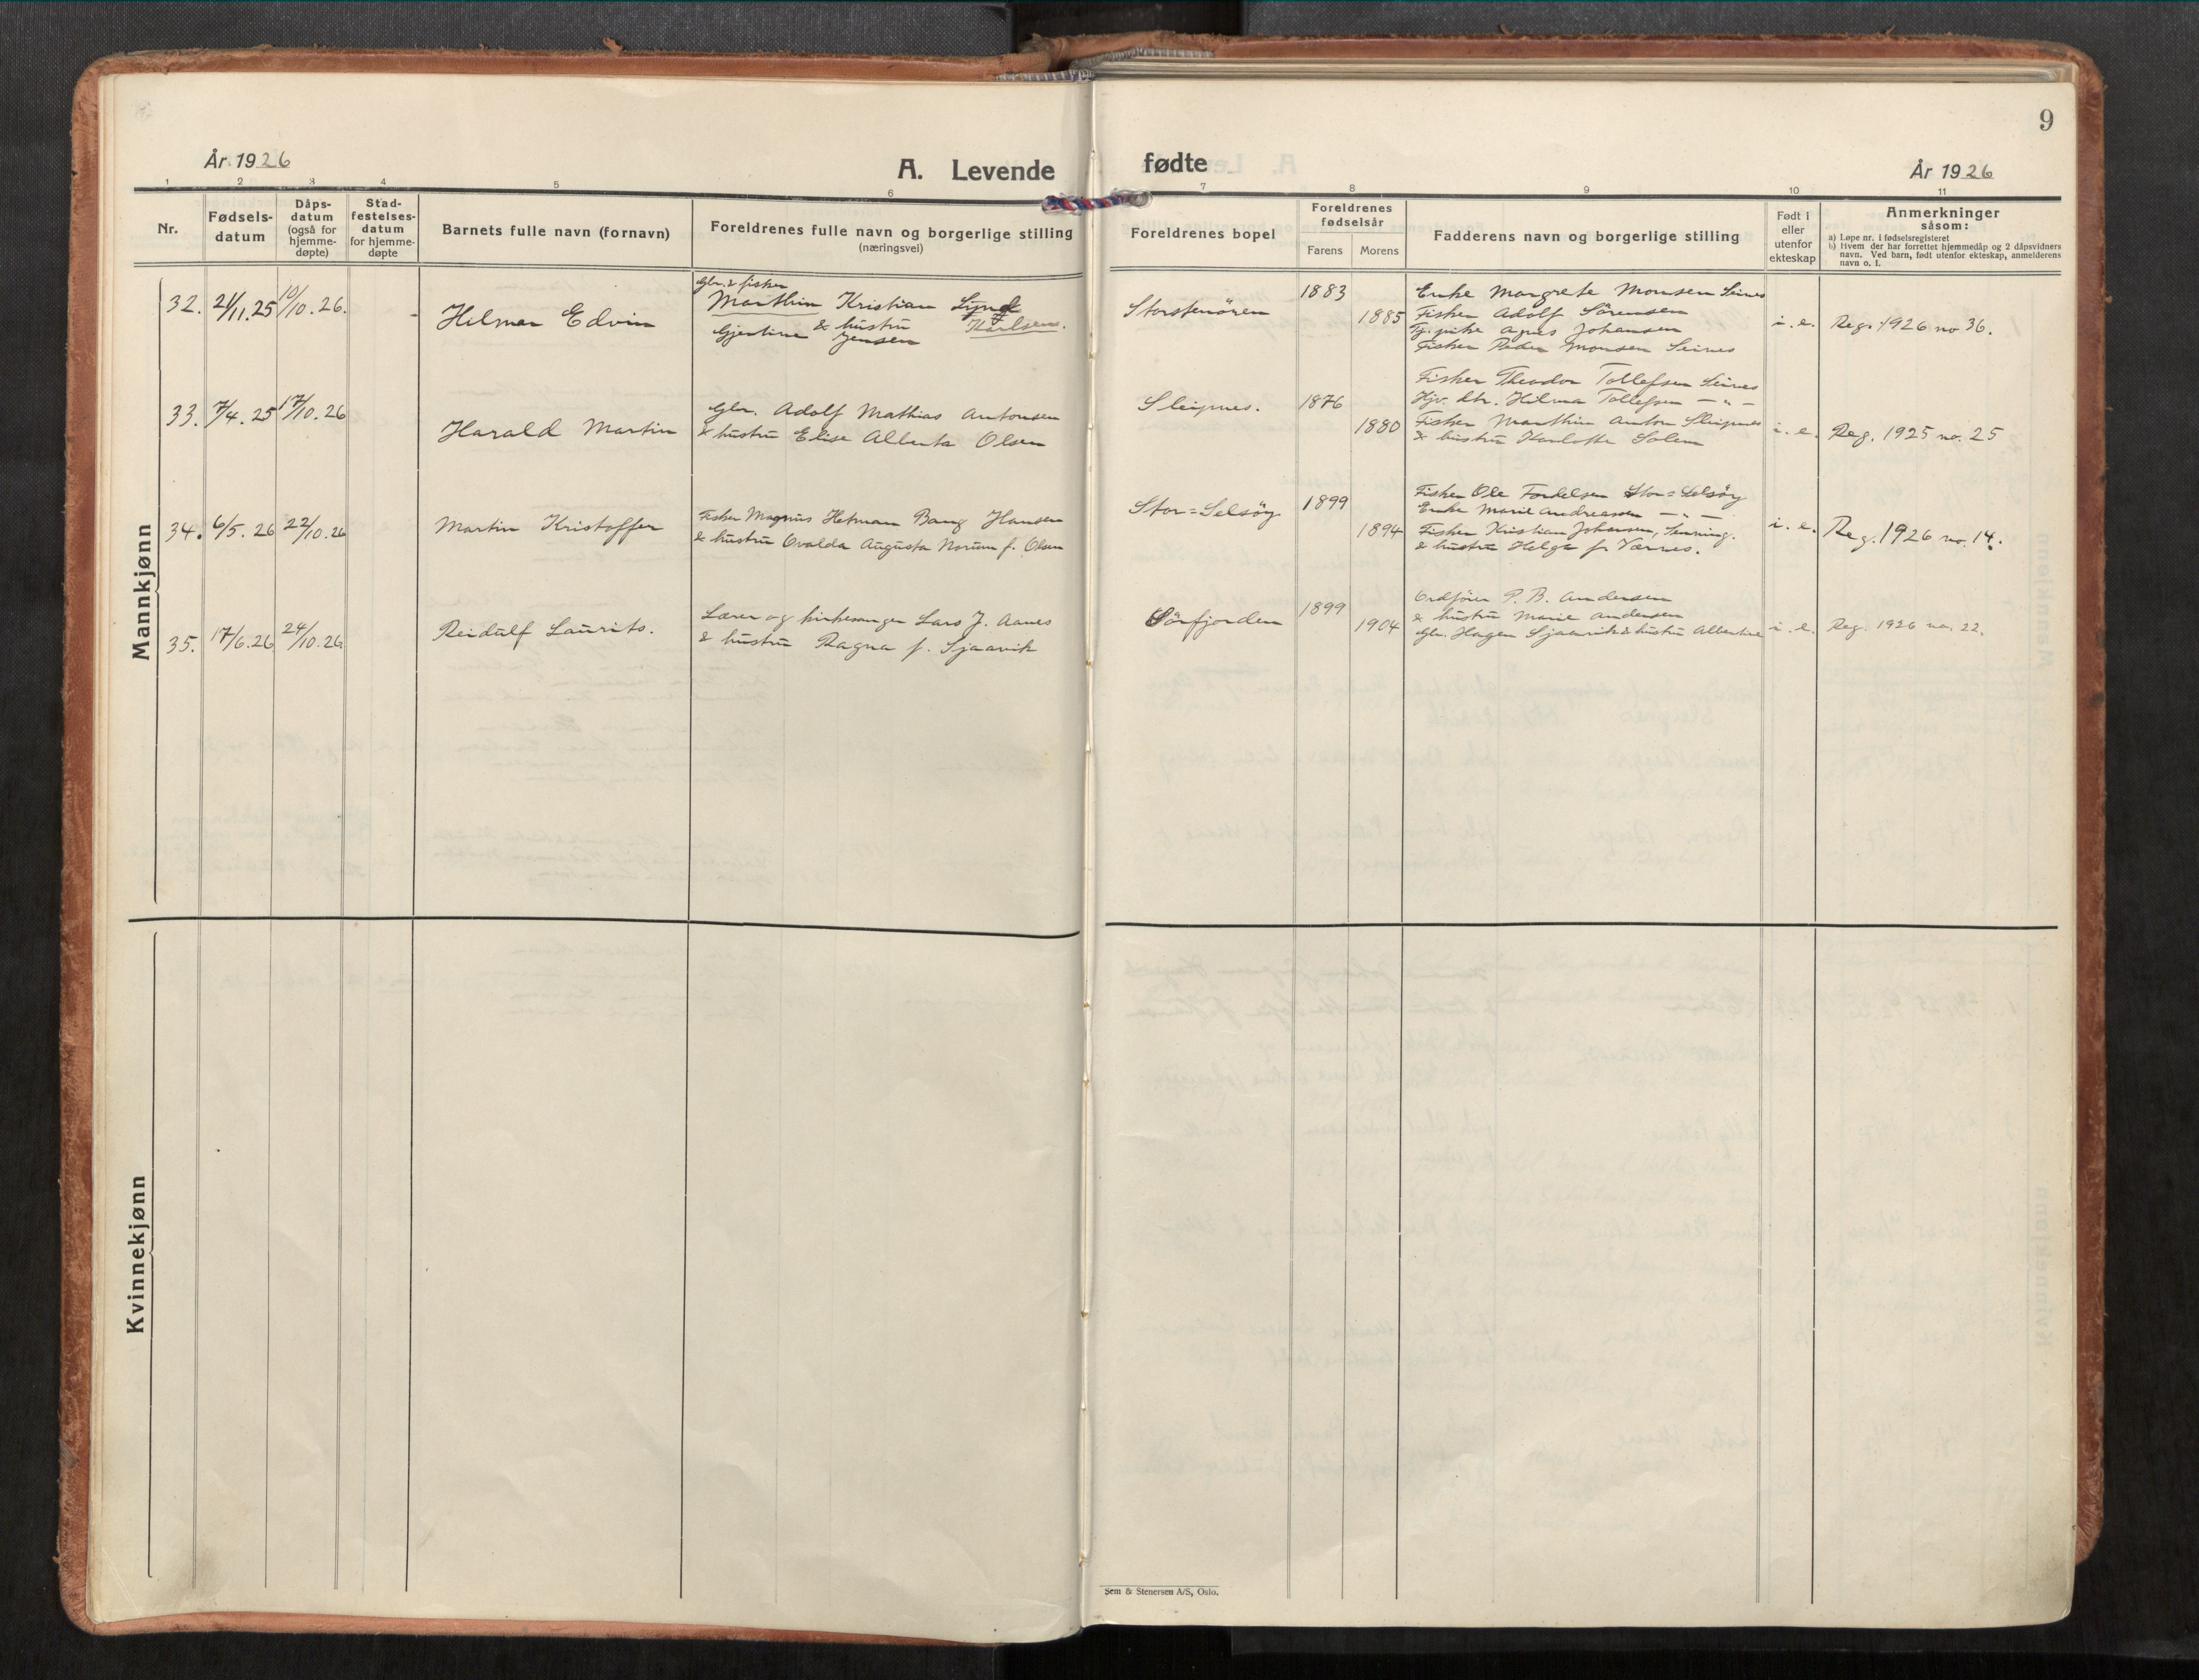 9
År 1926
A. Levende
fødte
År 1926
1 2 3 4 5 6 7 8 9 10 11
Nr.
Fødsels-
datum
Dåps-
datum
(også for
hjemme-
døpte)
Stad-
festelses-
datum
for hjemme-
døpte
Barnets fulle navn (fornavn)
Foreldrenes fulle navn og borgerlige stilling
(næringsvei)
Foreldrenes bopel
Foreldrenes
fødselsår
Farens
Morens
Fadderens navn og borgerlige stilling
Født i
eller
utenfor
ekteskap
Anmerkninger
såsom:
a) Løpe nr. i fødselsregisteret
b) Hvem der har forrettet hjemmedåp og 2 dåpsvidners
navn. Ved barn, født utenfor ekteskap, anmelderens
navn o. l.
Mannkjønn
32. 21/11.25 10/10.26. -
Hilmar Edvin
Gbr. & fisker
Marthin Kristian
Karlsen.
& hustru
Gjertine Jensen
Storstenören
1883
1885
Enke Margrete Monsen Seines
Fisker Adolf Sörensen
Tj.pike Agnes Johansen
Fisker Peder Monsen Seines
i. e.
Reg. 1926 no 36.
33. 7/4. 25 17/10. 26
Harald Martin
Gbr. Adolf Mathias Antonsen
& hustru Elise Alberta Olsen
Sleipnes.
1876
1880
Fisker Theodor Tollefsen Seines
Hjv. dtr. Hilma Tollefsen — " —
Fisker Marthin Anton Sleipnes
& hustru Harlotte Solem
i. e.
Reg. 1925 no. 25
34. 6/5. 26 22/10. 26
Martin Kristoffer
Fisker Magnus Hetman Bang Hansen
& hustru Ovalda Augusta Norum f. Olsen
Stor=Selsöy
1899
1894
Fisker Ole Fordelsen Stor=Selsöy
Enke Marie Andreassen — " —
Fisker Kristian Johansen, Senning.
& hustru Helga f. Værnes.
i. e.
Reg. 1926 no. 14.
35. 17/6. 26 24/10. 26
Reidulf Laurits.
Lærer og kirkesanger Lars J. Aanes
& hustru Ragna f. Sjaavik
Sörfjorden
1899
1904
Ordförer P. B. Andersen
& hustru Marie Andersen
Gbr. Hagen Sjaavik & hustru Albertine
i. e.
Reg. 1926 no. 22.
Kvinnekjønn
Sem & Stenersen A/S, Oslo.